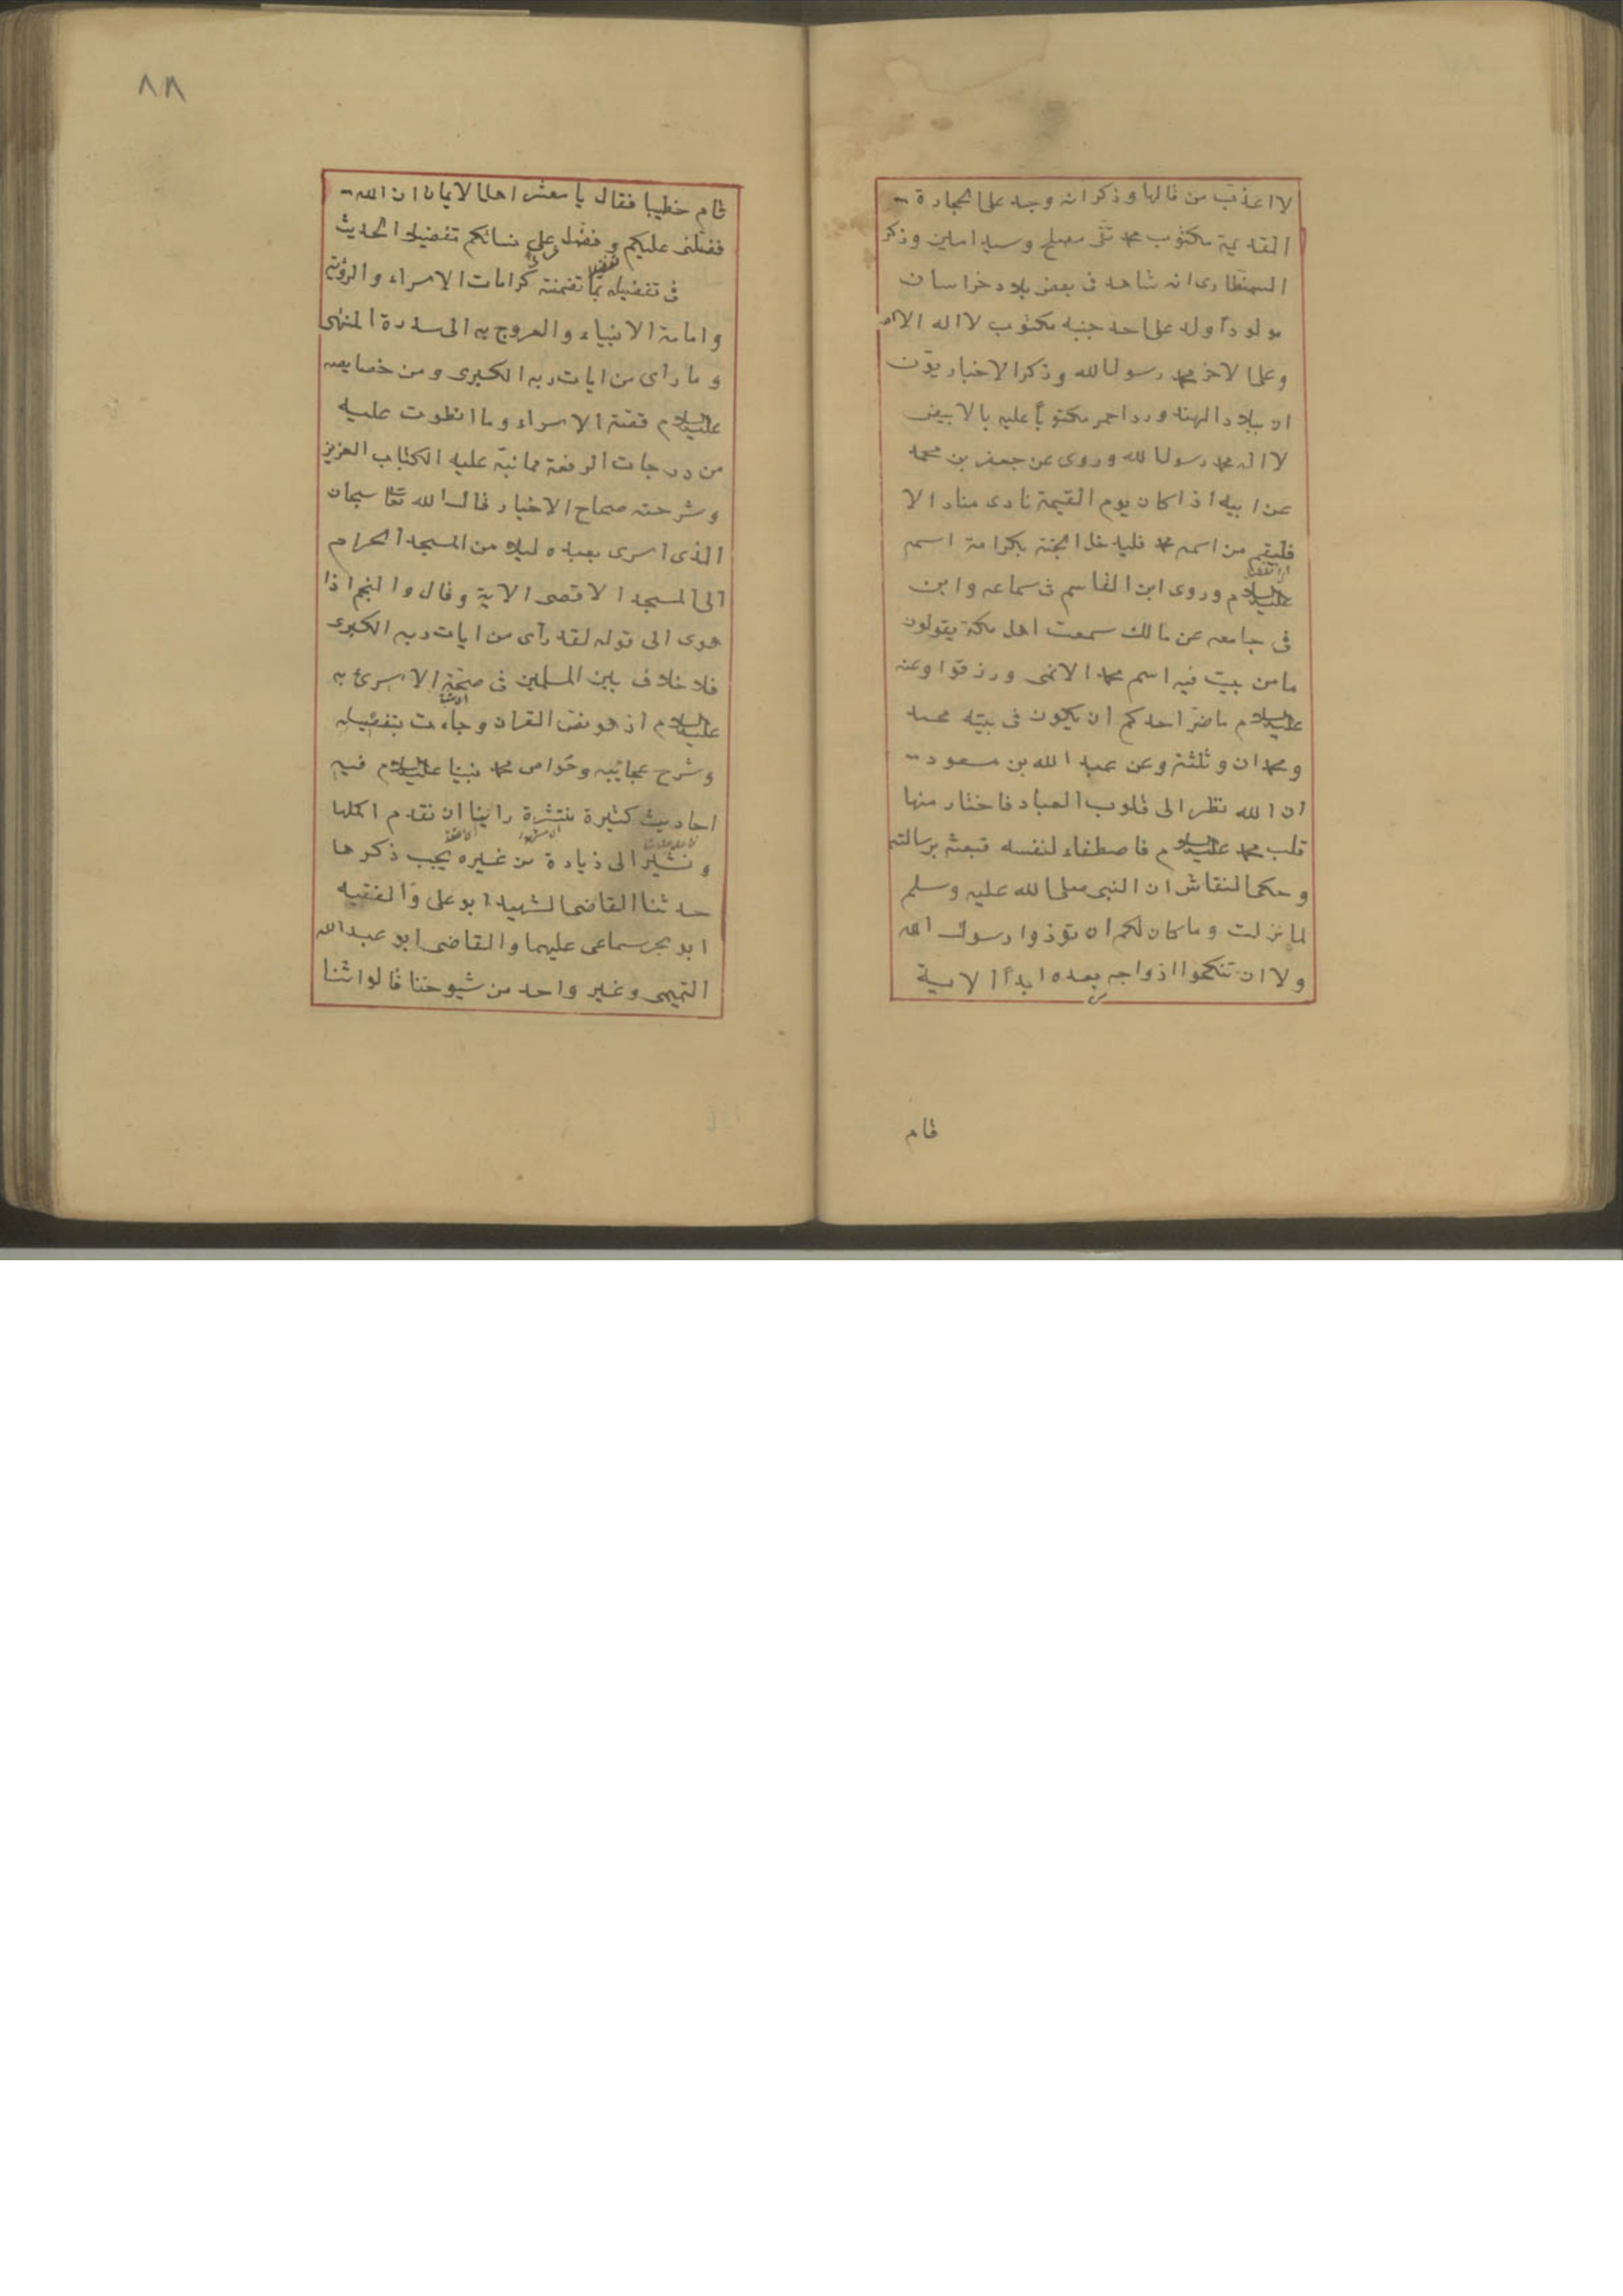 لا اعذب من قالها وذكر انه وجد على الحجارة
القديمة مكتوب محمد تقى مصلح وسيد امين وذكر
السمنطارى انه شاهد فى بعض بلاد خراسان
مولوداً ولد على احد جنبيه مكتوب لا اله الا الله
وعلى الاخر محمد رسول الله وذكر الاخباريون
ان ببلاد الهند ورد احمر مكتوباً عليه بالابيض
لا اله محمد رسول الله وروى عن جعفر بن محمد
عن ابيه اذا كان يوم القيمة نادى مناد الا
فليقم من اسمه محمد فليدخل الجنة بكرامة اسمه
عليه السلام وروى ابن القاسم فى سماعه وابن
فى جامعه عن مالك سمعت اهل مكة يقولون
ما من بيت فيه اسم محمد الا نمى ورزقوا وعنه
عليه السلام ما ضر احدكم ان يكون فى بيته محمد
ومحمدان وثلثة وعن عبد الله بن مسعود
ان الله نظر الى قلوب العباد فاختار منها
قلب محمد عليه السلام فاصطفاه لنفسه فبعثه برسالته
وحكى النقاش ان النبى صلى الله عليه وسلم
لما نزلت وما كان لكم ان تؤذوا رسول الله
ولا ان تنكحوا ازواجه بعده ابداً الاية
قام
٨٨
قام خطيبا فقال يا معشر اهل الايمان ان الله
فضلنى عليكم وفضل على نسائكم تفضيلا الحديث
فى تفضيله بما تضمنته كرامات الاسراء والرؤية
وامامة الانبياء والعروج به الى سدرة المنتهى
وما رأى من ايات ربه الكبرى ومن خصايصه
عليه السلام قصة الاسراء وما انطوت عليه
من درجات الرفعة مما نبه عليه الكتاب العزيز
وشرحته صحاح الاخبار قال الله تعا سبحان
الذى اسرى بعبده ليلا من المسجد الحرام
الى المسجد الاقصى الاية وقال والنجم اذا
هوى الى قوله لقد رأى من ايات ربه الكبرى
فلا خلاف بين المسلمين فى صحة الاسرى به
عليه السلام اذ هو نص القران وجاءت بتفصيله
وشرح عجائبه وخواص محمد نبينا عليه السلام فيه
احاديث كثيرة منتشرة راينا ان نقدم اكملها
ونشير الى زيادة من غيره يجب ذكرها
حدثنا القاضى الشهيد ابو على والفقيه
ابو بحر سماعى عليهما والقاضى ابو عبد الله
التميمى وغير واحد من شيوخنا قالوا ثنا